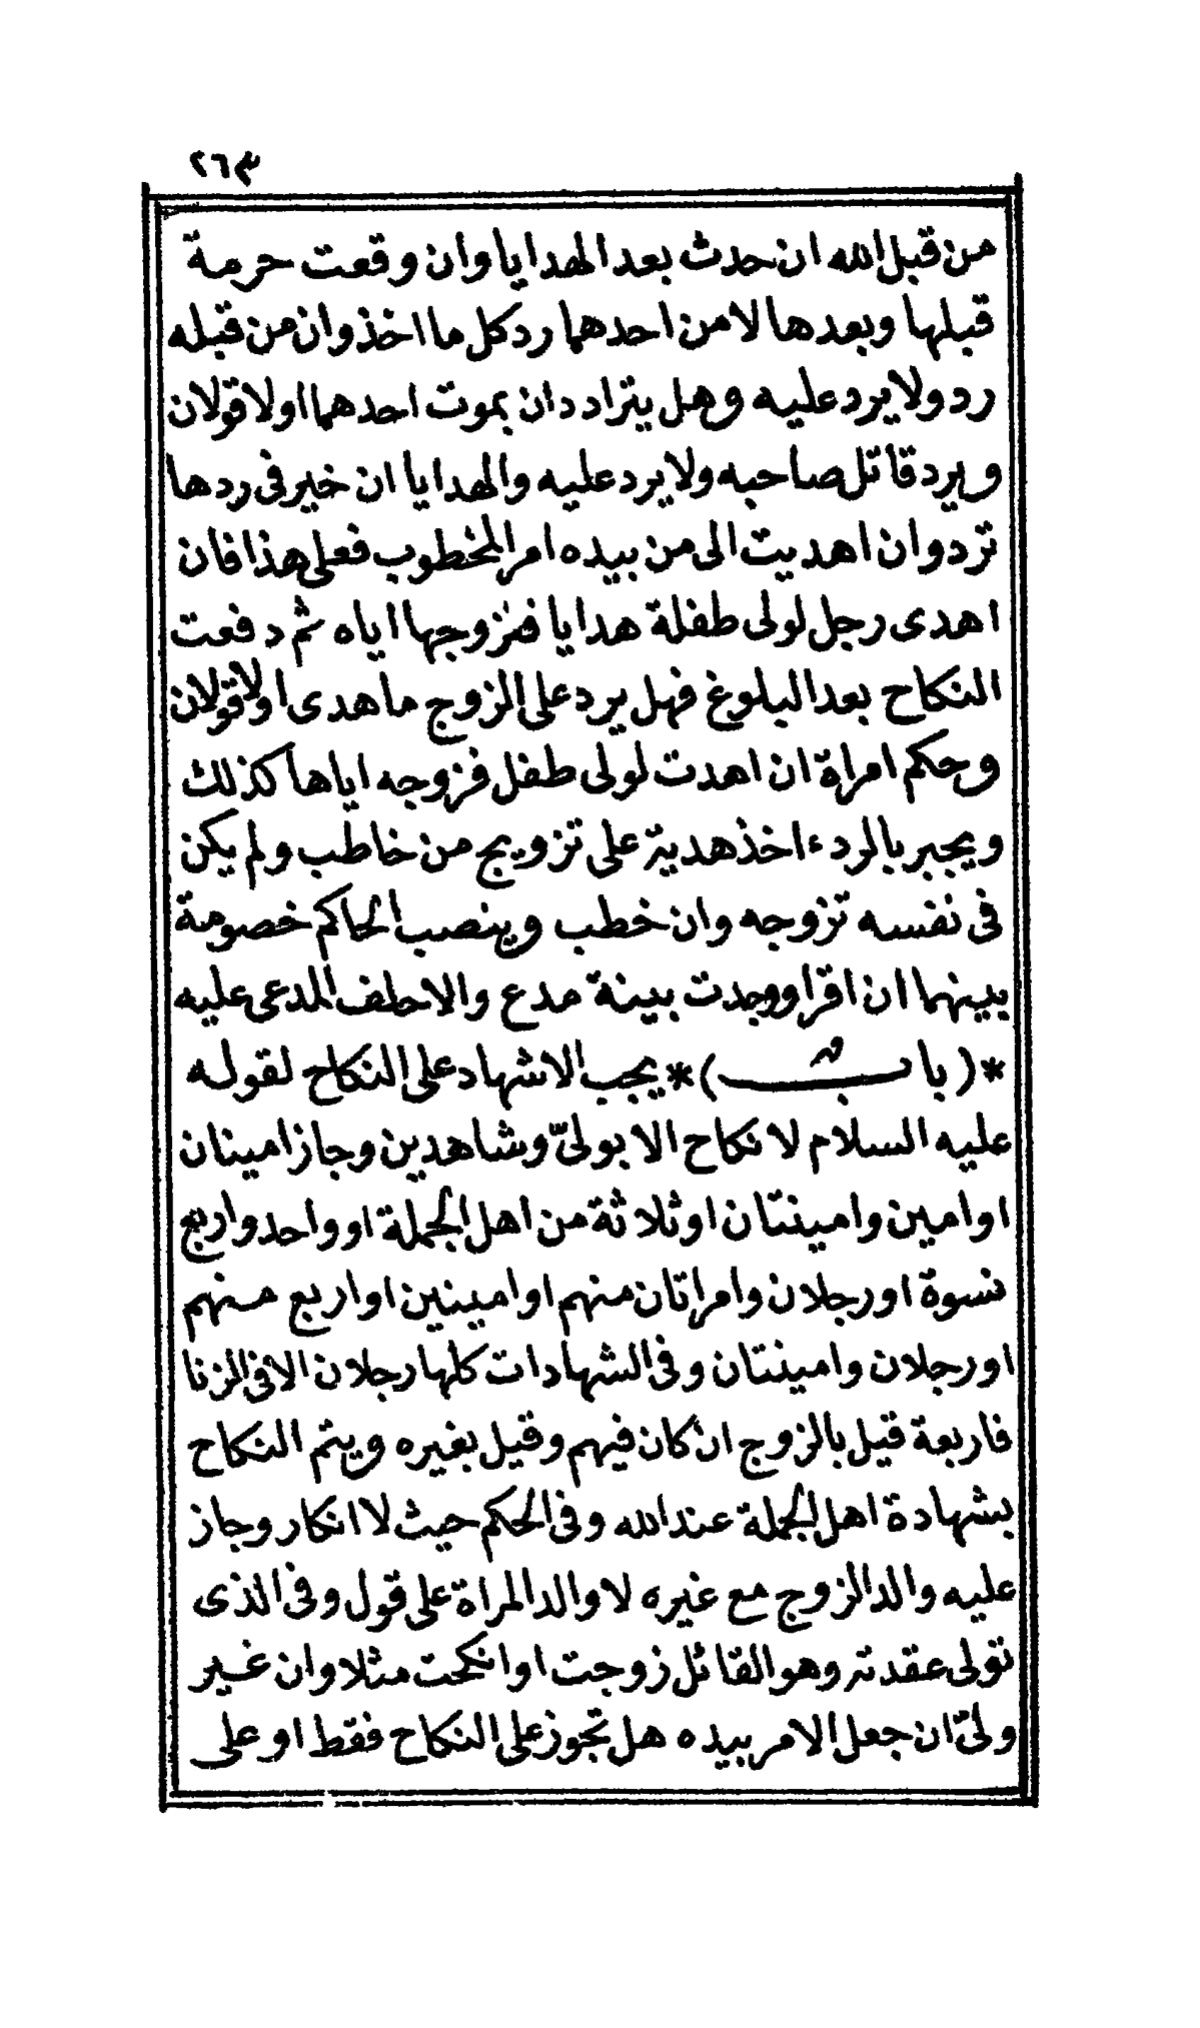 ٢٦٣
من قبل الله ان حدث بعد الهدايا وان وقعت حرمة
قبلها وبعدها لا من احدهما رد كل ما اخذ وان من قبله
رد ولا يرد عليه وهل يترادان بموت احدهما اولا قولان
ويرد قاتل صاحبه ولا يرد عليه والهدايا ان خير فى ردها
ترد وان اهديت الى من بيده امر المخطوب فعلى هذا فان
اهدى رجل لولى طفلة هدايا فزوجها اياه ثم دفعت
النكاح بعد البلوغ فهل يرد على الزوج ما هدى اولا قولان
وحكم امراة ان اهدت لولى طفل فزوجه اياها كذلك
ويجبر بالردء اخذ هدية على تزويج من خاطب ولم يكن
فى نفسه تزوجه وان خطب وينصب الحاكم خصومة
بينهما ان اقر او وجدت بينة مدع والا حلف المدعى عليه
*(باب)* يجب الاشهاد على النكاح لقوله
عليه السلام لا نكاح الا بولىّ وشاهدين وجاز امينان
او امين وامينتان او ثلاثة من اهل الجملة او واحد واربع
نسوة او رجلان وامراتان منهم او امينين او اربع منهم
او رجلان وامينتان وفى الشهادات كلها رجلان الا فى الزنا
فاربعة قيل بالزوج ان كان فيهم وقيل بغيره ويتم النكاح
بشهادة اهل الجملة عند الله وفى الحكم حيث لا انكار وجاز
عليه والد الزوج مع غيره لا والد المراة على قول وفى الذى
تولى عقدته وهو القائل زوجت او انكحت مثلا وان غير
ولىّ ان جعل الامر بيده هل تجوز على النكاح فقط او على